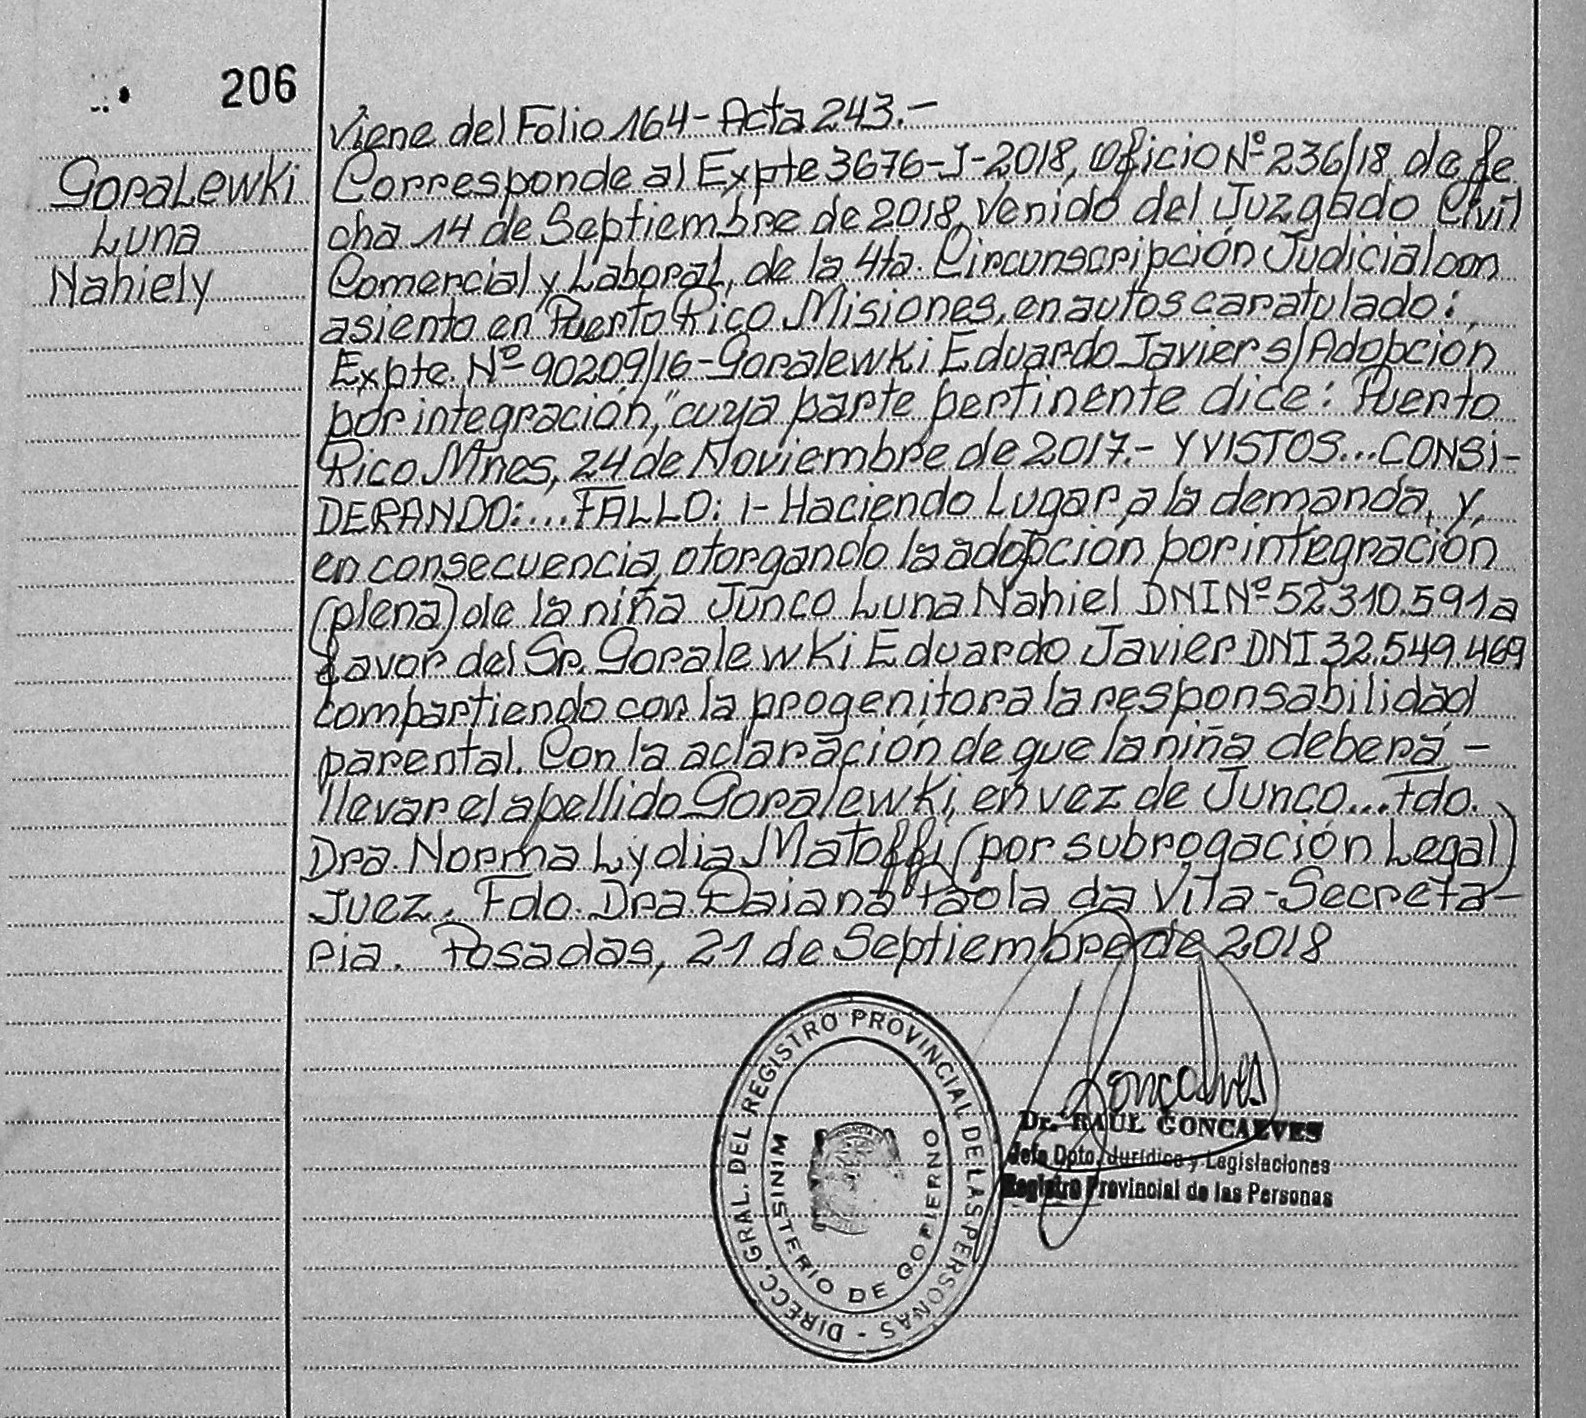 206
Goralewki
Luna
Nahiely
Viene del Folio 164 - Acta 243.-
Corresponde al Expte 3676-J-2018, Oficio Nº 236/18 de fe
cha 14 de Septiembre de 2018, Venido del Juzgado Civil
Comercial y Laboral, de la 4ta. Circunscripción Judicial con
asiento en Puerto Rico Misiones, en autos caratulado:
Expte. Nº 90209/16 - Goralewki Eduardo Javier s/Adopción
por integración," cuya parte pertinente dice: Puerto
Rico Mnes, 24 de Noviembre de 2017.- Y VISTOS...CONSI-
DERANDO:...FALLO: 1- Haciendo Lugar a la demanda, y,
en consecuencia, otorgando la adopción por integración
(plena) de la niña Junco Luna Nahiel DNI Nº 52.310.591 a
favor del Sr. Goralewki Eduardo Javier DNI 32.549.469
compartiendo con la progenitora la responsabilidad
parental. Con la aclaración de que la niña deberá -
llevar el apellido Goralewki, en vez de Junco... Fdo.
Dra. Norma Lydia Matoffi (por subrogación Legal)
Juez. Fdo. Dra. Daiana Paola da Vila - Secreta-
ria. Posadas, 21 de Septiembre de 2018
DIRECC. GRAL. DEL REGISTRO PROVINCIAL DE LAS PERSONAS -
MINISTERIO DE GOBIERNO
Goncalves
Dr. RAUL GONCALVES
Jefe Dpto. Jurídico y Legislaciones
Registro Provincial de las Personas